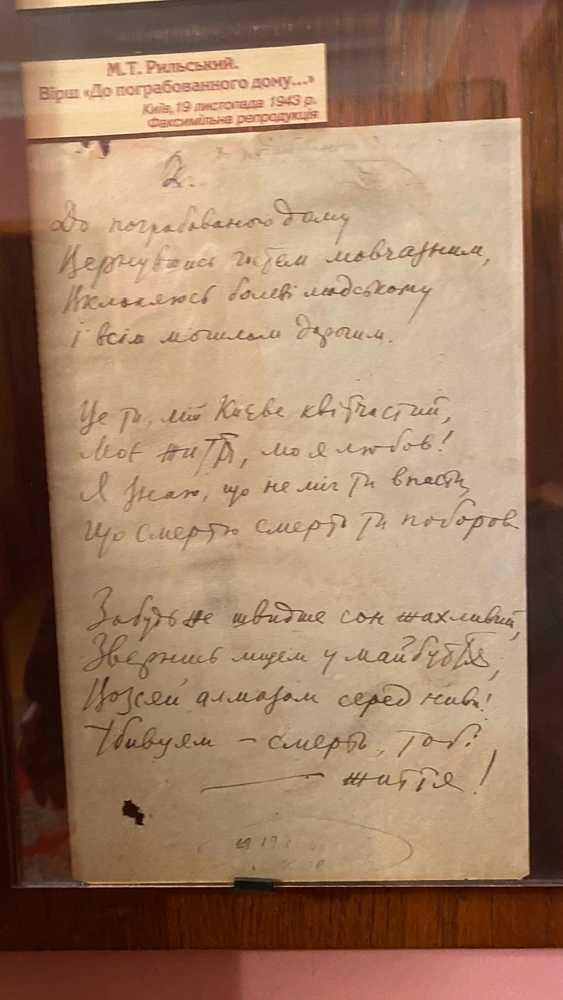 М.Т. Рильський.
Вірш «До пограбованного дому...»
Київ, 19 листопада 1943 р.
Факсимільна репродукція
2.
До пограбованого дому
Вернувшись гостем мовчазним,
Вклоняюсь болеві людському
І всім могилам дорогим.
Це ти, мій Києве квітчастий,
Моє життя, моя любов!
Я знаю, що не міг ти впасти,
Що смертю смерть ти поборов.
Забудь же швидше сон жахливий,
Звернись лицем у майбуття,
Возсяй алмазом серед ниви!
Убивцям – смерть, тобі
— життя!